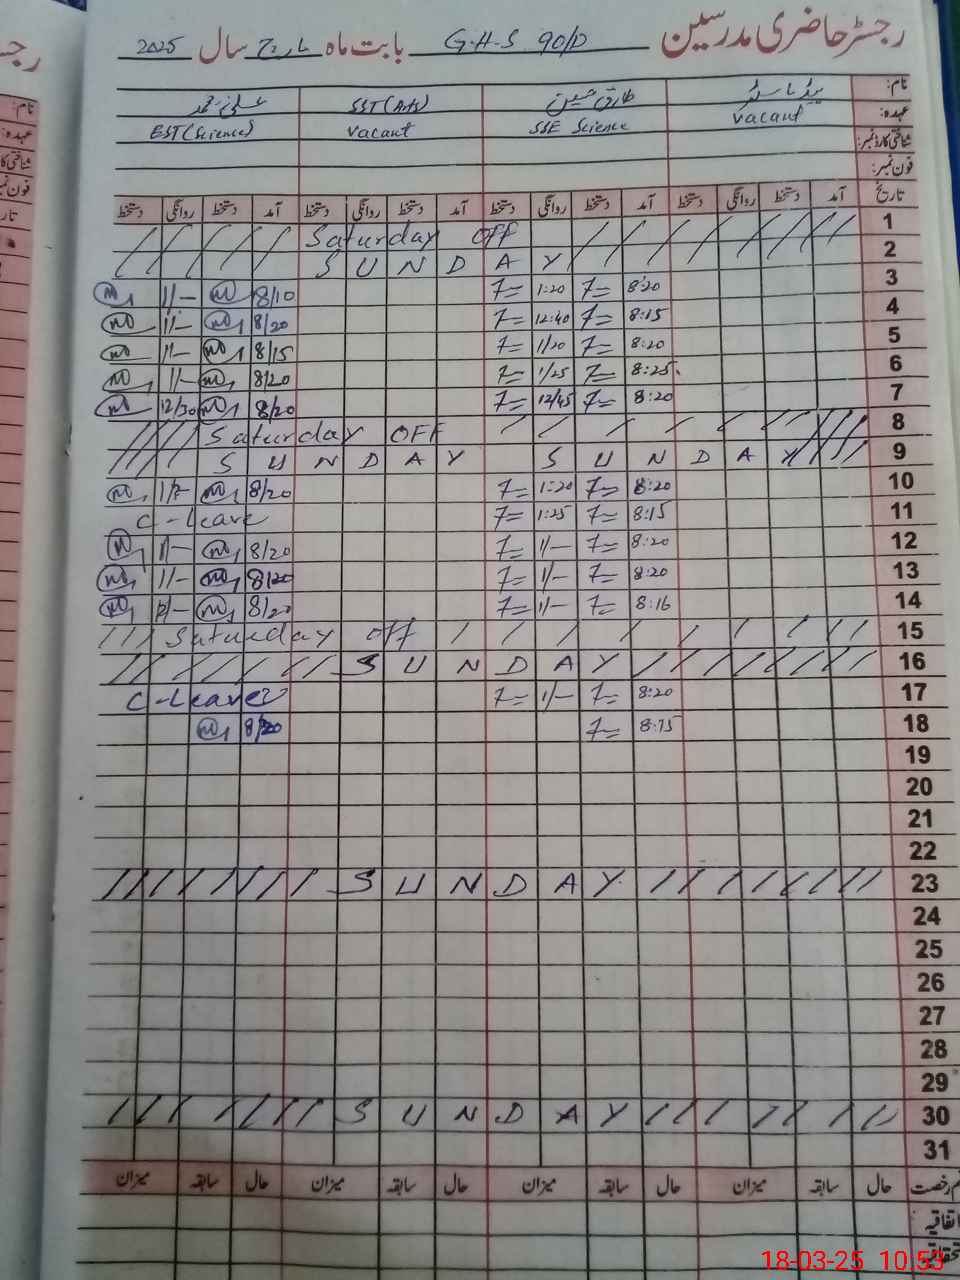 رجسٹر حاضری مدرسین G.H.S 90/D بابت ماہ مارچ سال 2025
نام: ہیڈ ماسٹر طارق حسین SST(Arts)
عہدہ: Vacant SSE Science Vacant EST(Science)
شناختی کارڈ نمبر:
فون نمبر:
تاریخ آمد دستخط روانگی دستخط آمد دستخط روانگی دستخط آمد دستخط روانگی دستخط آمد دستخط روانگی دستخط
1 Saturday OFF
2 SUNDAY
3 8:20 1:20 8/10 11/-
4 8:15 12:40 8/20 11/-
5 8:20 1/20 8/15 11/-
6 8:25 1/25 8/20 11/-
7 8:20 12/45 8/20 12/30
8 Saturday OFF
9 SUNDAY SUNDAY
10 8:20 1:20 8/20
11 8:15 1:25 C-Leave
12 8:20 1/- 8/20 11/-
13 8:20 1/- 8/20 11/-
14 8:16 1/- 8/20
15 Saturday OFF
16 SUNDAY
17 8:20 1/- C-Leave
18 8:15 8/20
19
20
21
22
23 SUNDAY
24
25
26
27
28
29
30 SUNDAY
31
رخصت حال سابقہ میزان حال سابقہ میزان حال سابقہ میزان حال سابقہ میزان
اتفاقیہ
18-03-25 10:53